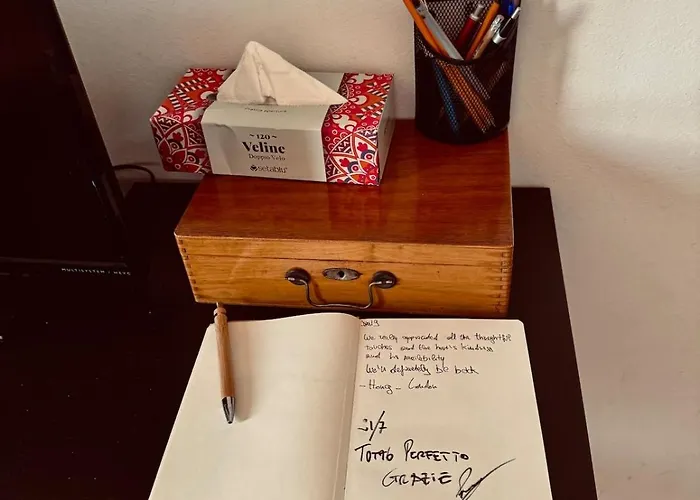 ~ 120 ~
Veline
Doppio Velo
setablu
MULTISYSTEM / HERO
We really appreciated all the thoughtful
touches and the host's kindness
and his availibility
We'll definitely be back
- London
31/7
TUTTO PERFETTO
GRAZIE